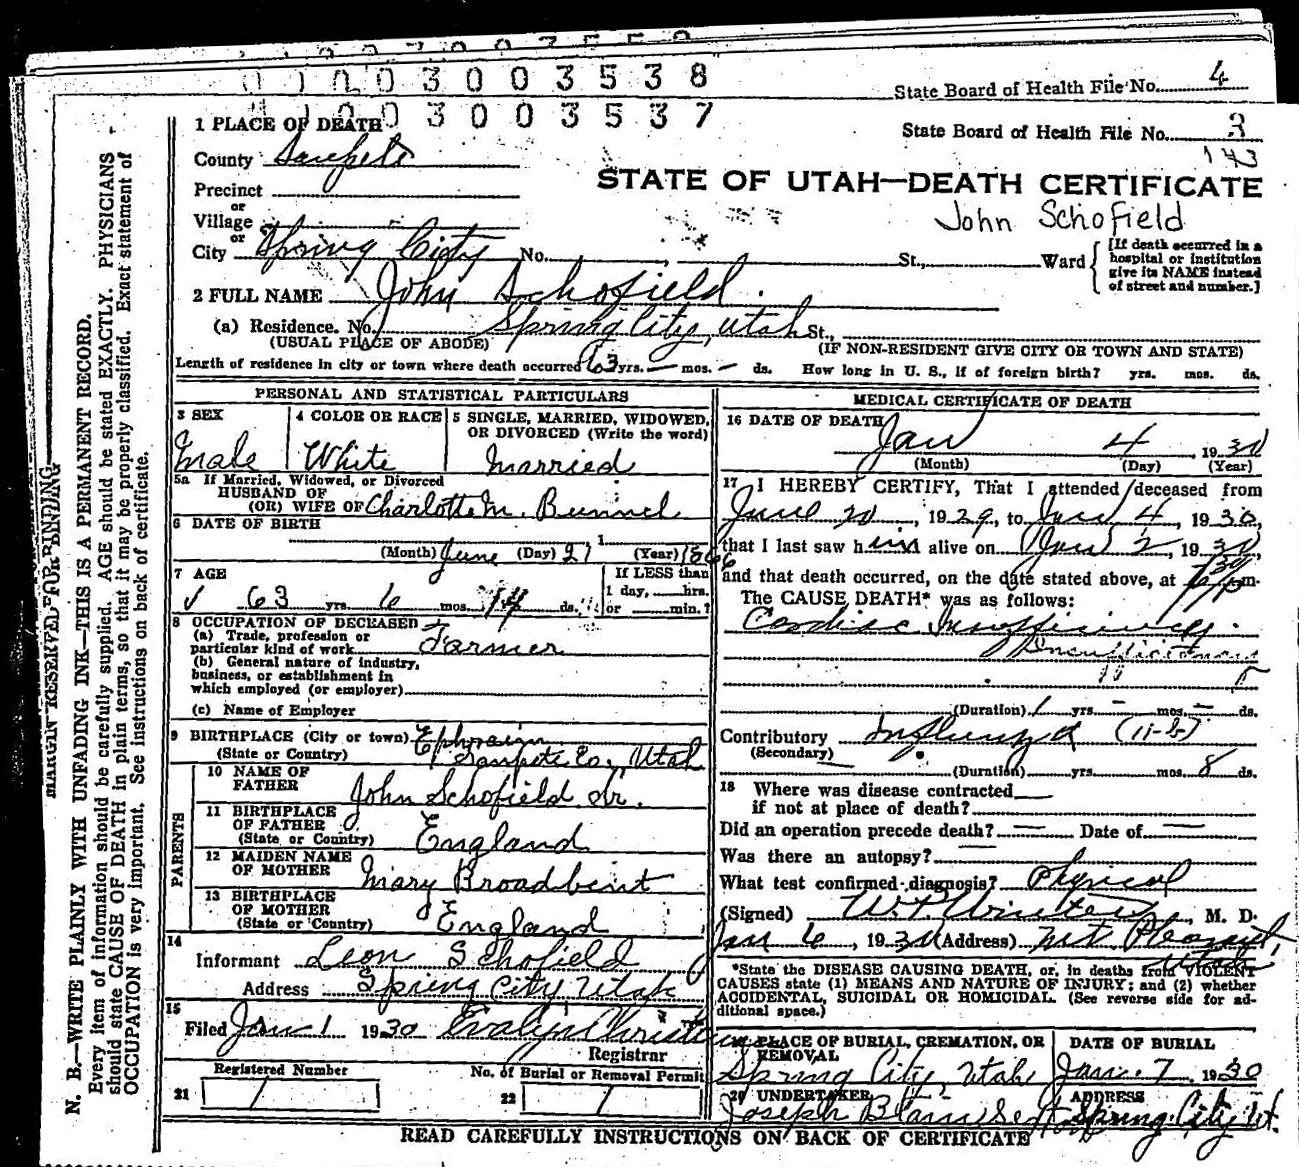 0 1 0 0 3 0 0 3 5 3 8
State Board of Health File No. 4
0 1 0 0 3 0 0 3 5 3 7
State Board of Health File No. 3
143
1 PLACE OF DEATH
County Sanpete
STATE OF UTAH—DEATH CERTIFICATE
Precinct
or
Village
John Schofield
or
City Spring City No. , St., Ward
[If death occurred in a
hospital or institution
give its NAME instead
of street and number.]
2 FULL NAME John Schofield.
(a) Residence. No. Spring City, Utah St.,
(USUAL PLACE OF ABODE) (IF NON-RESIDENT GIVE CITY OR TOWN AND STATE)
Length of residence in city or town where death occurred 63 yrs. — mos. — ds. How long in U. S., if of foreign birth? yrs. mos. ds.
PERSONAL AND STATISTICAL PARTICULARS
3 SEX 4 COLOR OR RACE 5 SINGLE, MARRIED, WIDOWED,
OR DIVORCED (Write the word)
Male White Married
5a If Married, Widowed, or Divorced
HUSBAND OF
(OR) WIFE OF Charlotte M. Bunnel
6 DATE OF BIRTH
(Month) June (Day) 21 (Year) 1866
7 AGE If LESS than
1 day, hrs.
63 yrs. 6 mos. 14 ds. or min.?
8 OCCUPATION OF DECEASED
(a) Trade, profession or
particular kind of work Farmer
(b) General nature of industry,
business, or establishment in
which employed (or employer)
(c) Name of Employer
9 BIRTHPLACE (City or town) Ephraim
(State or Country) Sanpete Co., Utah
PARENTS
10 NAME OF
FATHER John Schofield Sr.
11 BIRTHPLACE
OF FATHER
(State or Country) England
12 MAIDEN NAME
OF MOTHER Mary Broadbent
13 BIRTHPLACE
OF MOTHER
(State or Country) England
14
Informant Leon Schofield
Address Spring City Utah
15
Filed Jan 1 1930 Evalyn
Registrar
Registered Number No. of Burial or Removal Permit
21 1 22 1
MEDICAL CERTIFICATE OF DEATH
16 DATE OF DEATH
Jan 4, 1930
(Month) (Day) (Year)
17 I HEREBY CERTIFY, That I attended deceased from
June 20, 1929, to Jan 4, 1930,
that I last saw him alive on Jan 2, 1930,
and that death occurred, on the date stated above, at m.
The CAUSE DEATH* was as follows:
Cardiac Insufficiency.
(Duration) 1 yrs. — mos. — ds.
Contributory Influenza (11-b)
(Secondary)
(Duration) yrs. mos. 8 ds.
18 Where was disease contracted
if not at place of death?
Did an operation precede death? — Date of —
Was there an autopsy? —
What test confirmed diagnosis? Physical
(Signed) , M. D.
Jan 6, 1930 (Address) Mt Pleasant,
Utah
*State the DISEASE CAUSING DEATH, or, in deaths from VIOLENT
CAUSES state (1) MEANS AND NATURE OF INJURY; and (2) whether
ACCIDENTAL, SUICIDAL OR HOMICIDAL. (See reverse side for ad-
ditional space.)
19 PLACE OF BURIAL, CREMATION, OR
REMOVAL
Spring City, Utah
DATE OF BURIAL
Jan. 7, 1930
20 UNDERTAKER
Joseph
ADDRESS
Spring City Ut.
READ CAREFULLY INSTRUCTIONS ON BACK OF CERTIFICATE
MARGIN RESERVED FOR BINDING
N. B.—WRITE PLAINLY WITH UNFADING INK—THIS IS A PERMANENT RECORD.
Every item of information should be carefully supplied. AGE should be stated EXACTLY. PHYSICIANS
should state CAUSE OF DEATH in plain terms, so that it may be properly classified. Exact statement of
OCCUPATION is very important. See instructions on back of certificate.